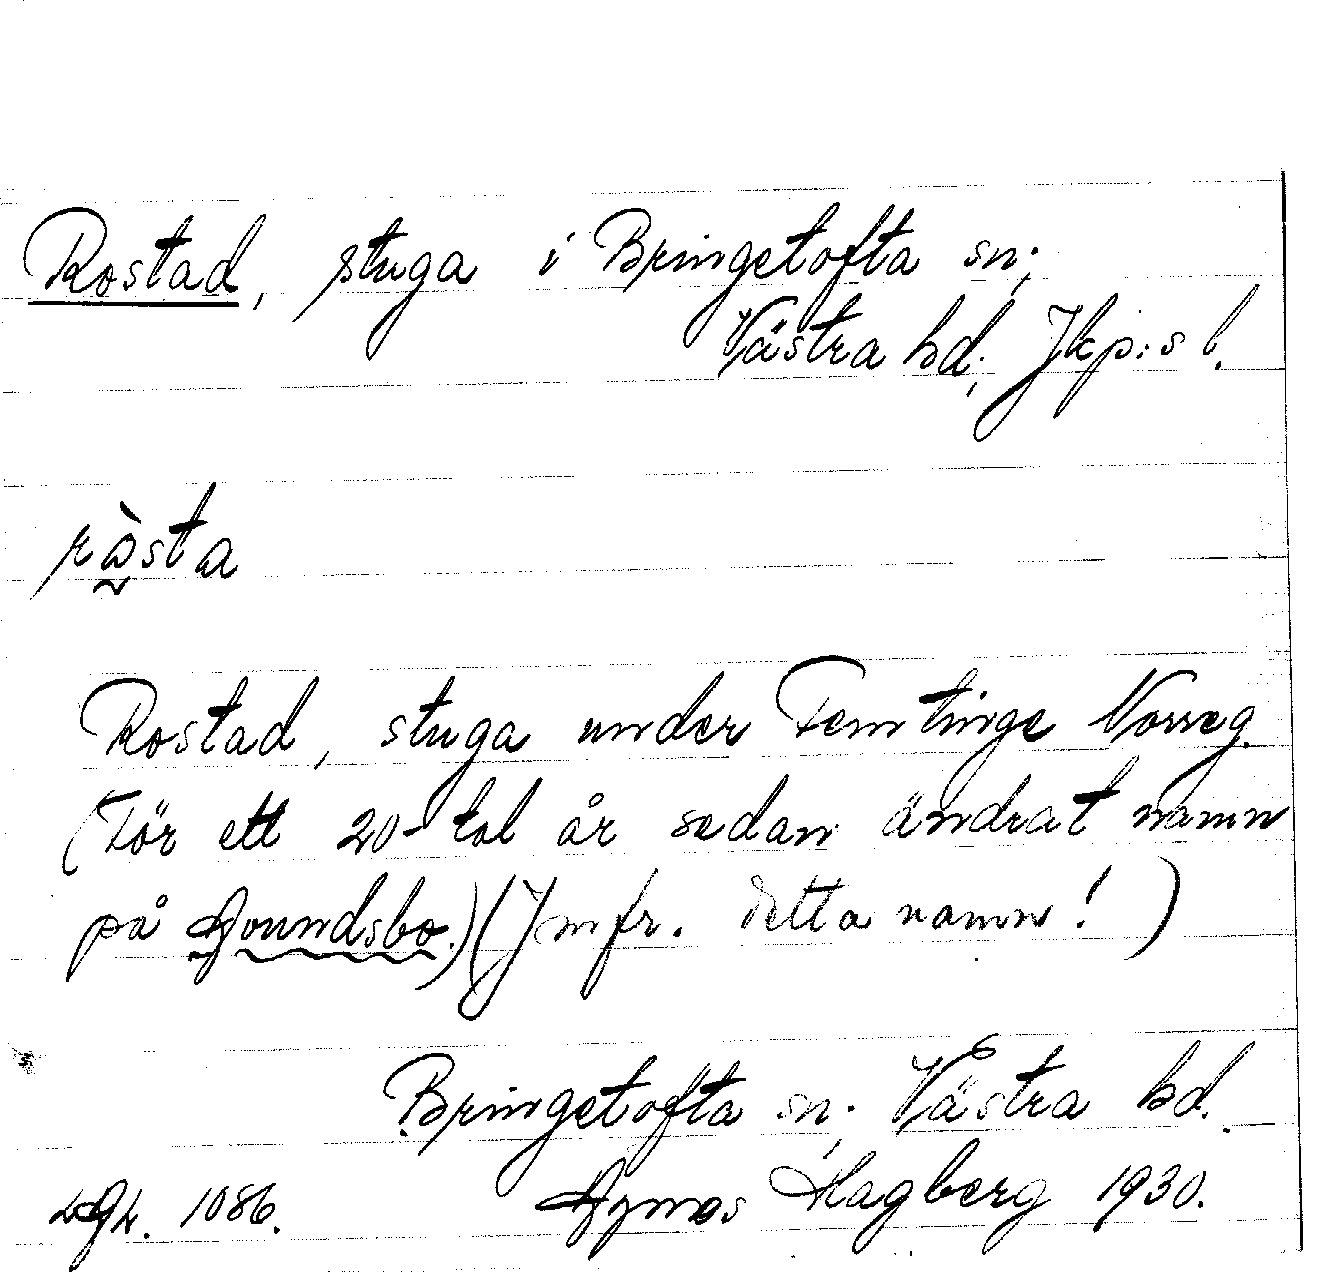 Rostad, stuga i Bringetofta sn;
Västra hd; Jkp:s l.
ròsta
Rostad, stuga under Femtinge Norreg.
(För ett 20-tal år sedan ändrat namn
på Gundsbo.) (Jmfr. detta namn!)
Bringetofta sn; Västra hd.
1086. Agnes Hagberg 1930.